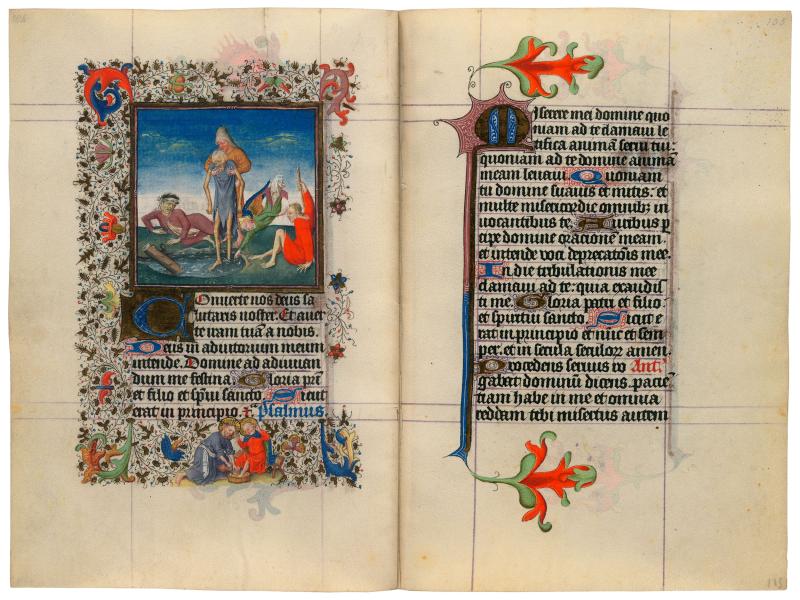 104
Onuerte nos deus sa
lutaris noster. Et auer
te iram tuā a nobis.
Deus in adiutorium meum
intende. Domine ad adiuuan
dum me festina. Gloria pr̄i
et filio et spūi sancto. Sicut
erat in principio. Psalmus.
105
Miserere mei domine quo
niam ad te clamaui le
tifica animā serui tui
quoniam ad te domine animā
meam leuaui. Quoniam
tu domine suauis et mitis. et
multe misericordie omnibꝫ in
uocantibus te. Auribus p
cipe domine orationē meam.
et intende voci deprecatōnis mee.
In die tribulationis mee
clamaui ad te. quia exaudis
ti me. Gloria patri et filio.
et spiritui sancto. Sicut e
rat in principio et nūc et sem
per. et in secula seculorᷣ amen.
Procedens seruus ro Ant̄.
gabat dominū dicens. pacien
tiam habe in me et omnia
reddam tibi misertus autem